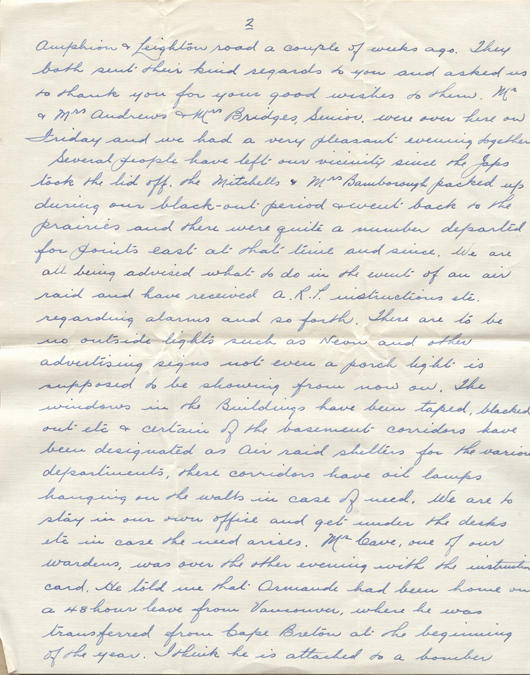 2
Amphion & Leighton road a couple of weeks ago. They
both sent their kind regards to you and asked us
to thank you for your good wishes to them. Mr
& Mrs Andrews & Mrs Bridges, Senior, were over here on
Friday and we had a very pleasant evening together
Several people have left our vicinity since the Japs
took the lid off, the Mitchells & Mrs Bamborough packed up
during our black-out period & went back to the
prairies and there were quite a number departed
for points east at that time and since. We are
all being advised what to do in the event of an air
raid and have received A.R.P. instructions etc.
regarding alarms and so forth. There are to be
no outside lights such as Neon and other
advertising signs not even a porch light is
supposed to be showing from now on. The
windows in the Buildings have been taped, blacked
out etc & certain of the basement corridors have
been designated as Air raid shelters for the various
departments, these corridors have oil lamps
hanging on the walls in case of need. We are to
stay in our own office and get under the desks
etc in case the need arises. Mr Cave, one of our
wardens, was over the other evening with the instruction
card. He told me that Armande had been home on
a 48 hour leave from Vancouver, where he was
transferred from Cape Breton at the beginning
of the year. I think he is attached to a bomber